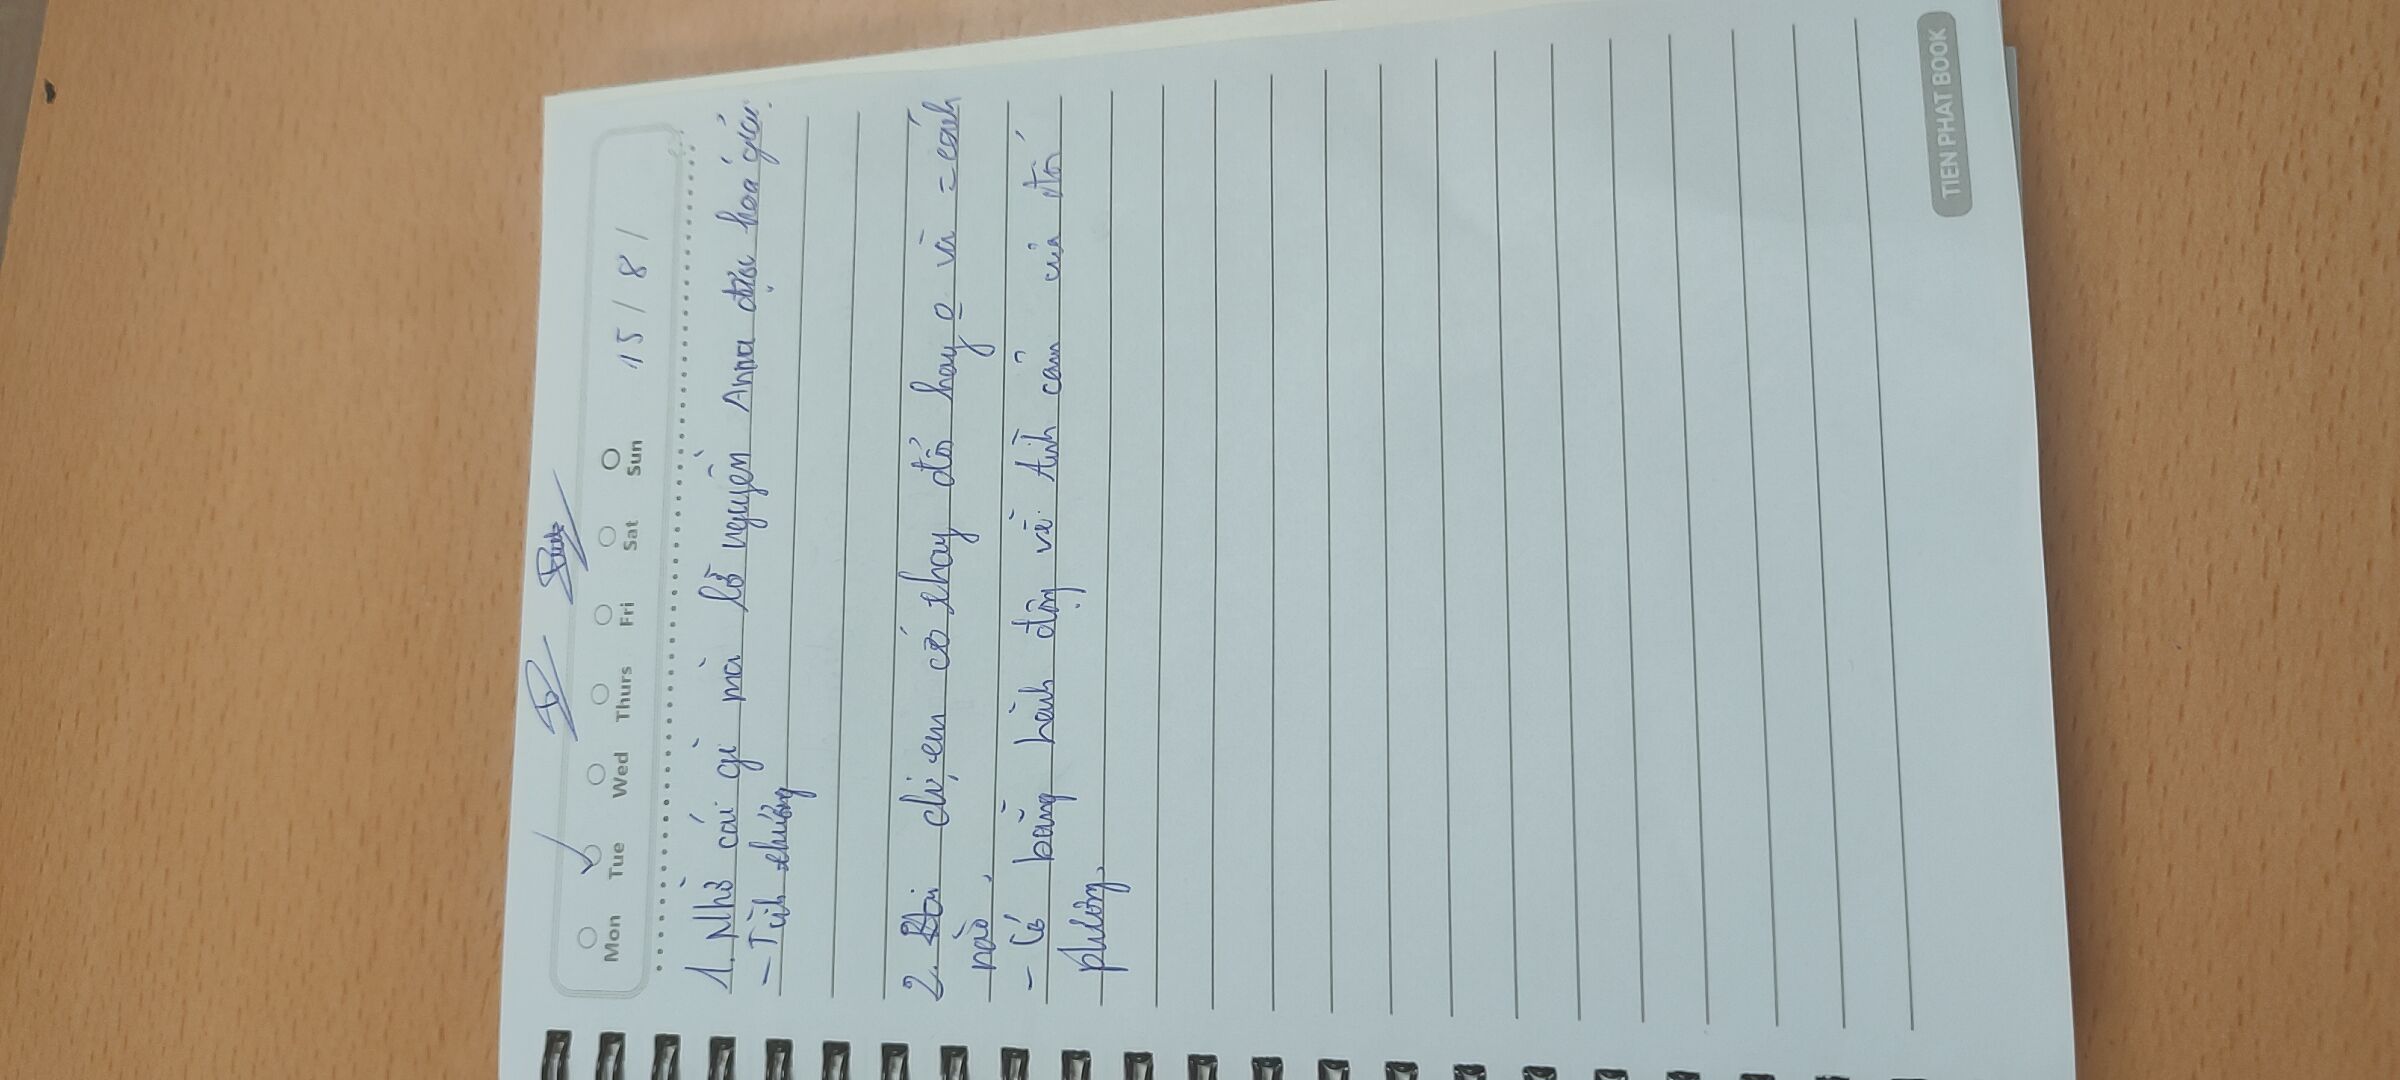 Mon Tue Wed Thurs Fri Sat Sun 15/8/
1. Nhờ cái gì mà lời nguyền Anna được hoá giải.
- Tình thương
2. Hai chị em có thay đổi hay o và = cách
nào.
- Có bằng hành động về tình cảm của đối
phương.
TIEN PHAT BOOK